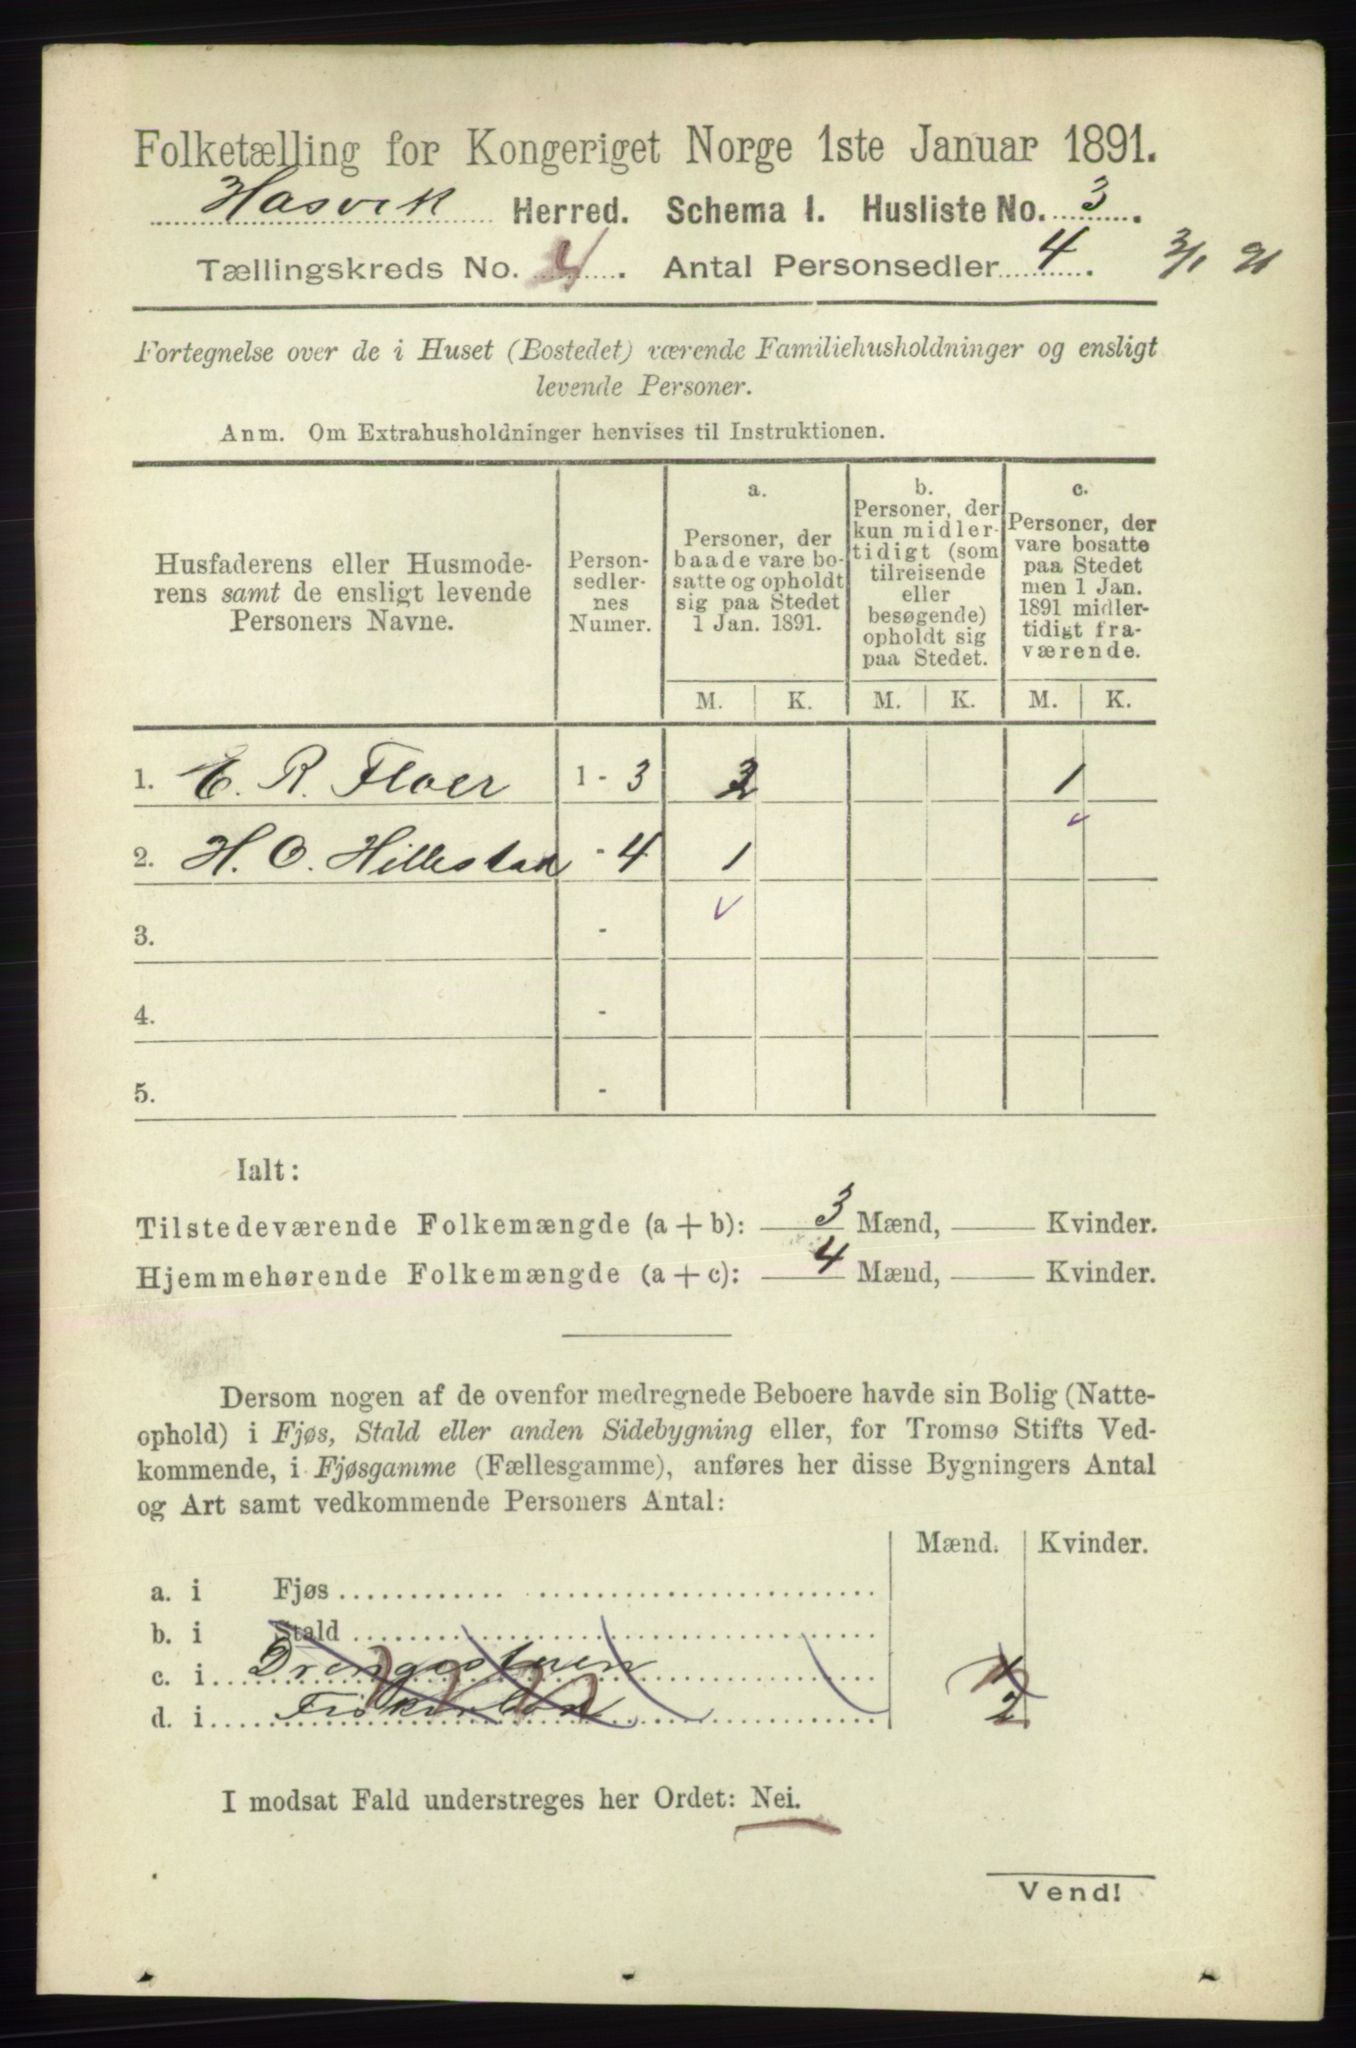 Folketælling for Kongeriget Norge 1ste Januar 1891.
Hasvik Herred. Schema 1. Husliste No. 3.
Tællingskreds No. . Antal Personsedler 4. 3/1 91
Fortegnelse over de i Huset (Bostedet) værende Familiehusholdninger og ensligt
levende Personer.
Anm. Om Extrahusholdninger henvises til Instruktionen.
Husfaderens eller Husmode-
rens samt de ensligt levende
Personers Navne.
Person-
sedler-
nes
Numer.
a.
Personer, der
baade vare bo-
satte og opholdt
sig paa Stedet
1 Jan. 1891.
b.
Personer, der
kun midler-
tidigt (som
tilreisende
eller
besøgende)
opholdt sig
paa Stedet.
c.
Personer, der
vare bosatte
paa Stedet
men 1 Jan.
1891 midler-
tidigt fra-
værende.
M. K. M. K. M. K.
1. E. R. Floer 1 - 3 2 1
2. H. O. Hillestad - 4 1
3. -
4. -
5. -
Ialt:
Tilstedeværende Folkemængde (a + b): 3 Mænd, Kvinder.
Hjemmehørende Folkemængde (a + c): 4 Mænd, Kvinder.
Dersom nogen af de ovenfor medregnede Beboere havde sin Bolig (Natte-
ophold) i Fjøs, Stald eller anden Sidebygning eller, for Tromsø Stifts Ved-
kommende, i Fjøsgamme (Fællesgamme), anføres her disse Bygningers Antal
og Art samt vedkommende Personers Antal:
Mænd. Kvinder.
a. i Fjøs
b. i Stald
c. i Drengestuen
d. i 2
I modsat Fald understreges her Ordet: Nei.
Vend!